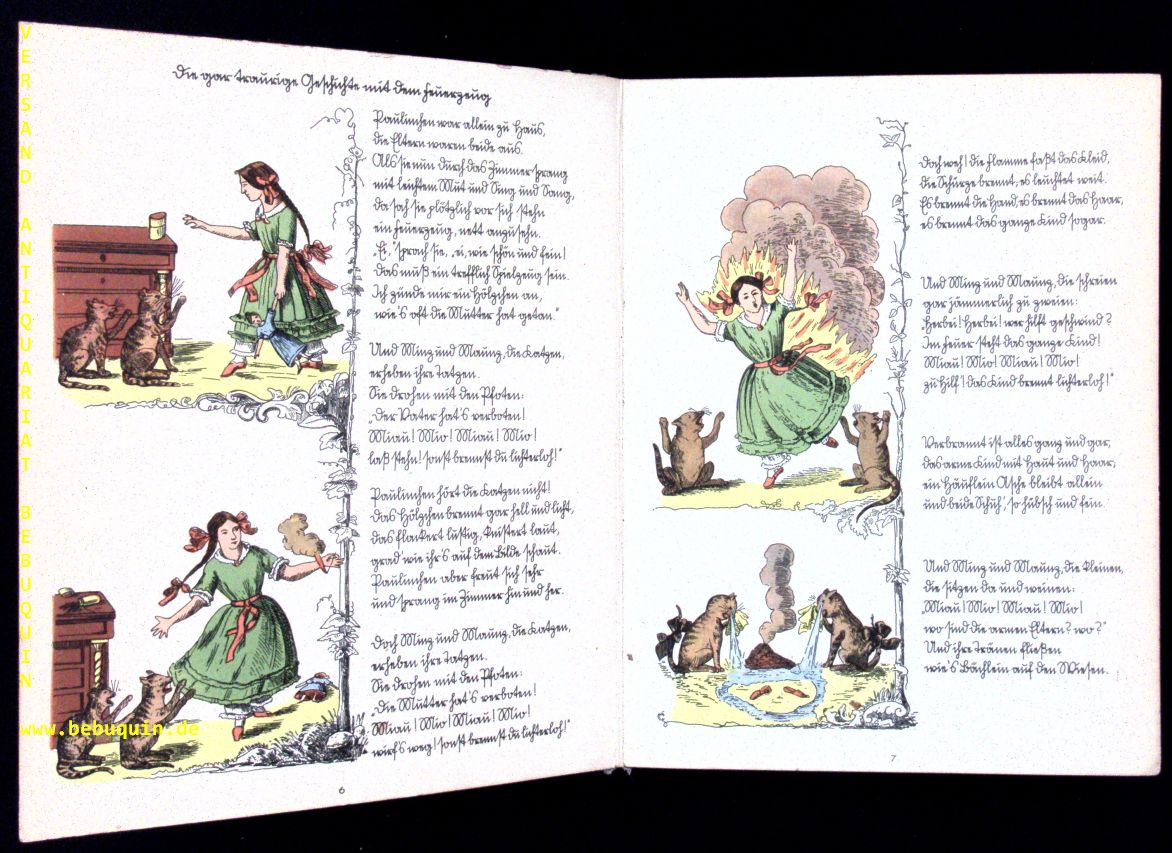 VERSAND ANTIQUARIAT BEBUQUIN
www.bebuquin.de
Die gar traurige Geschichte mit dem Feuerzeug
Paulinchen war allein zu Haus,
die Eltern waren beide aus.
Als sie nun durch das Zimmer sprang
mit leichtem Mut und Sing und Sang,
da sah sie plötzlich vor sich stehn
ein Feuerzeug, nett anzusehn.
„Ei,“ sprach sie, „ei, wie schön und fein!
Das muß ein trefflich Spielzeug sein.
Ich zünde mir ein Hölzchen an,
wie's oft die Mutter hat getan.“
Und Minz und Maunz, die Katzen,
erheben ihre Tatzen.
Sie drohen mit den Pfoten:
„Der Vater hat's verboten!
Miau! Mio! Miau! Mio!
laß stehn! sonst brennst du lichterloh!“
Paulinchen hört die Katzen nicht!
Das Hölzchen brennt gar hell und licht,
das flackert lustig, knistert laut,
grad' wie ihr's auf dem Bilde schaut.
Paulinchen aber freut sich sehr
und sprang im Zimmer hin und her.
Doch Minz und Maunz, die Katzen,
erheben ihre Tatzen.
Sie drohen mit den Pfoten:
„Die Mutter hat's verboten!
Miau! Mio! Miau! Mio!
wirf's weg! sonst brennst du lichterloh!“
6
Doch weh! die Flamme faßt das Kleid,
die Schürze brennt, es leuchtet weit.
Es brennt die Hand, es brennt das Haar,
es brennt das ganze Kind sogar.
Und Minz und Maunz, die schreien
gar jämmerlich zu zweien:
„Herbei! Herbei! wer hilft geschwind?
Im Feuer steht das ganze Kind!
Miau! Mio! Miau! Mio!
zu Hilf'! das Kind brennt lichterloh!“
Verbrannt ist alles ganz und gar,
das arme Kind mit Haut und Haar;
ein Häuflein Asche bleibt allein
und beide Schuh', so hübsch und fein.
Und Minz und Maunz, die kleinen,
die sitzen da und weinen:
„Miau! Mio! Miau! Mio!
wo sind die armen Eltern? wo?“
Und ihre Tränen fließen
wie's Bächlein auf den Wiesen.
7